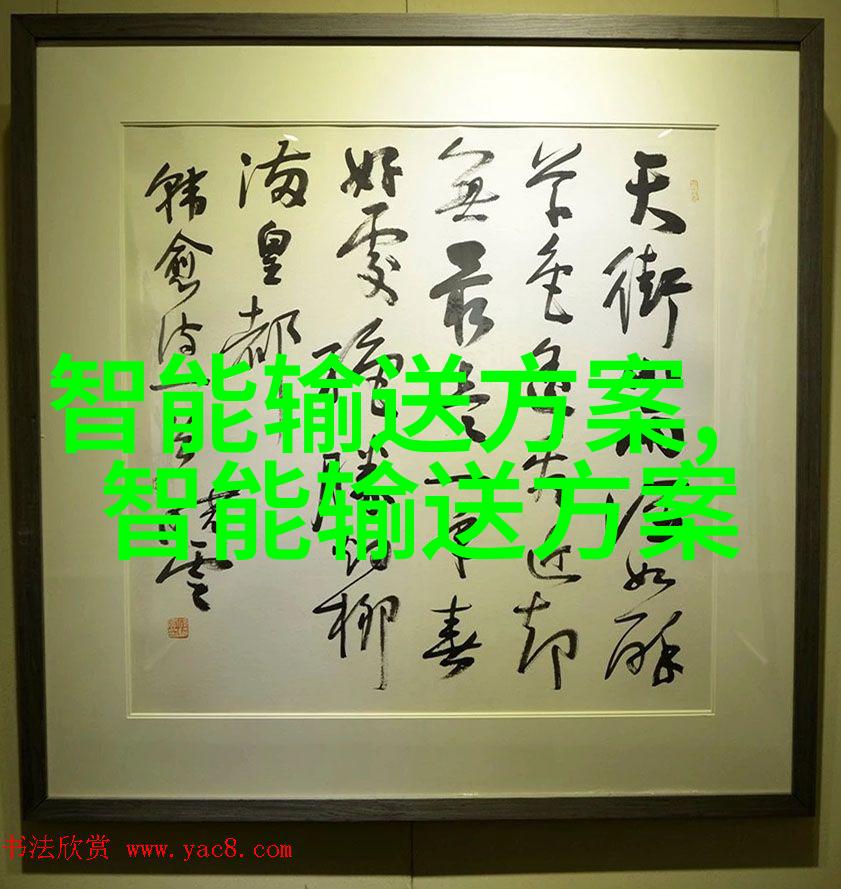 天街小雨潤如酥
草色遥看近却
無最是一年春
好處絕勝烟柳
滿皇都
韓愈詩一首
智能输送方案,
智能输送方案
书法欣赏 www.yac8.com